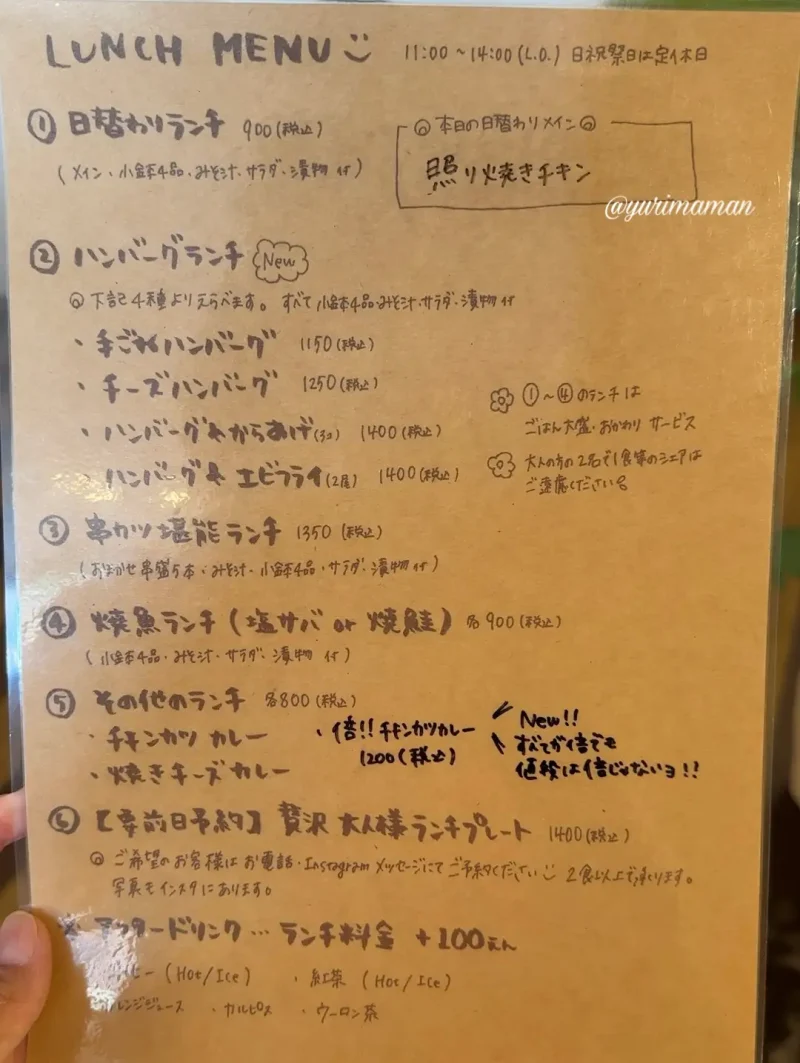 LUNCH MENU 11:00～14:00(L.O.) 日祝祭日は定休日
① 日替わりランチ 900(税込)
(メイン・小鉢4品・みそ汁・サラダ・漬物 付)
◎本日の日替わりメイン◎
照り焼きチキン
@yurimaman
② ハンバーグランチ New
◎下記4種よりえらべます。すべて小鉢4品・みそ汁・サラダ・漬物 付
・手ごねハンバーグ 1150(税込)
・チーズハンバーグ 1250(税込)
・ハンバーグ&からあげ(3コ) 1400(税込)
・ハンバーグ& エビフライ(2尾) 1400(税込)
①～④のランチは
ごはん大盛・おかわり サービス
大人の方の2名で1食等のシェアは
ご遠慮ください
③ 串カツ堪能ランチ 1350(税込)
(おまかせ串盛5本・みそ汁・小鉢4品・サラダ・漬物 付)
④ 焼魚ランチ(塩サバ or 焼鮭) 各900(税込)
(小鉢4品・みそ汁・サラダ・漬物 付)
⑤ その他のランチ 各800(税込)
・チキンカツ カレー
・焼きチーズカレー
・倍!! チキンカツカレー
1200(税込)
New!!
すべてが倍でも
値段は倍じゃないヨ!!
⑥ 【要前日予約】 贅沢 大人様ランチプレート 1400(税込)
◎ご希望のお客様はお電話・Instagramメッセージにてご予約ください 2食以上で承ります。
写真もインスタにあります。
※ アフタードリンク… ランチ料金 +100えん
コーヒー (Hot/Ice) ・紅茶 (Hot/Ice)
オレンジジュース ・カルピス ・ウーロン茶